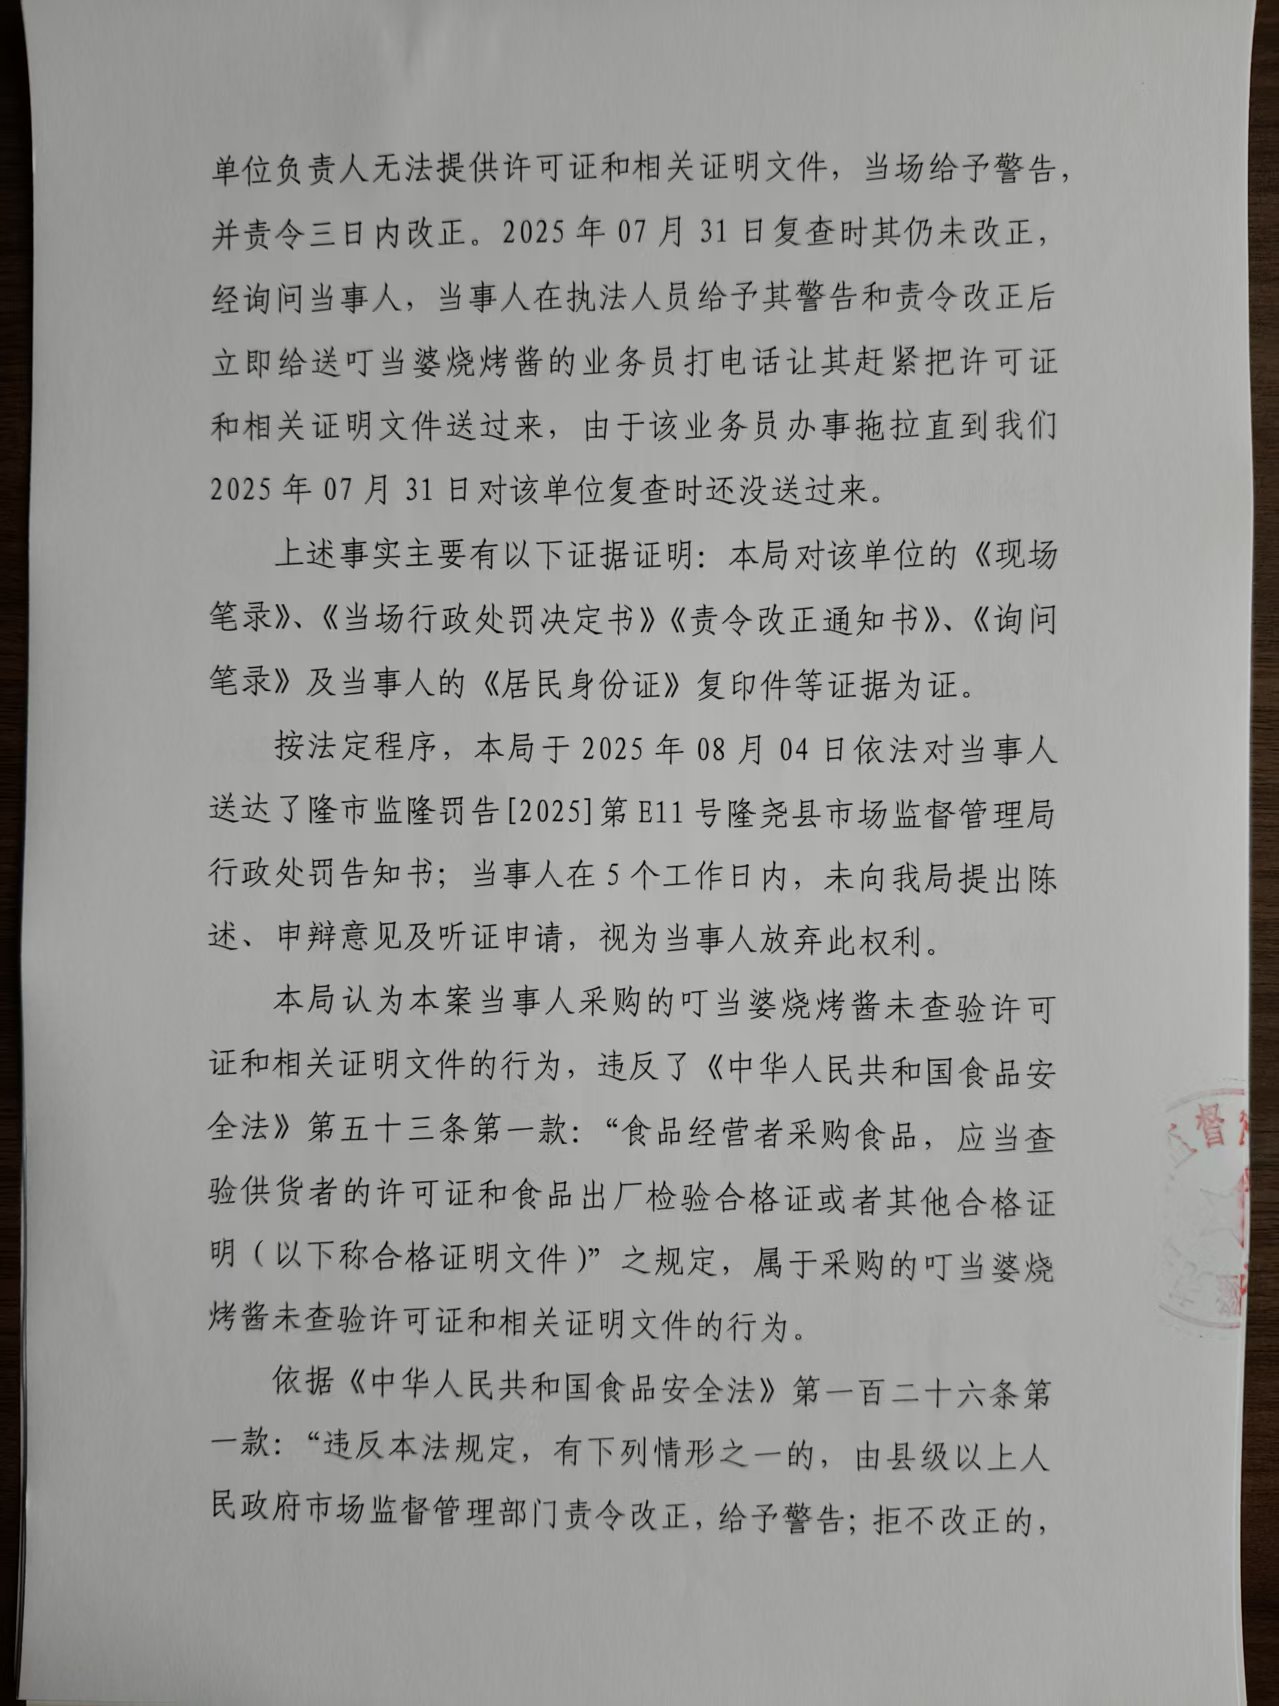 单位负责人无法提供许可证和相关证明文件，当场给予警告，
并责令三日内改正。2025 年 07 月 31 日复查时其仍未改正，
经询问当事人，当事人在执法人员给予其警告和责令改正后
立即给送叮当婆烧烤酱的业务员打电话让其赶紧把许可证
和相关证明文件送过来，由于该业务员办事拖拉直到我们
2025 年 07 月 31 日对该单位复查时还没送过来。
上述事实主要有以下证据证明：本局对该单位的《现场
笔录》、《当场行政处罚决定书》《责令改正通知书》、《询问
笔录》及当事人的《居民身份证》复印件等证据为证。
按法定程序，本局于 2025 年 08 月 04 日依法对当事人
送达了隆市监隆罚告[2025]第 E11 号隆尧县市场监督管理局
行政处罚告知书；当事人在 5 个工作日内，未向我局提出陈
述、申辩意见及听证申请，视为当事人放弃此权利。
本局认为本案当事人采购的叮当婆烧烤酱未查验许可
证和相关证明文件的行为，违反了《中华人民共和国食品安
全法》第五十三条第一款：“食品经营者采购食品，应当查
验供货者的许可证和食品出厂检验合格证或者其他合格证
明（以下称合格证明文件）”之规定，属于采购的叮当婆烧
烤酱未查验许可证和相关证明文件的行为。
依据《中华人民共和国食品安全法》第一百二十六条第
一款：“违反本法规定，有下列情形之一的，由县级以上人
民政府市场监督管理部门责令改正，给予警告；拒不改正的，
督